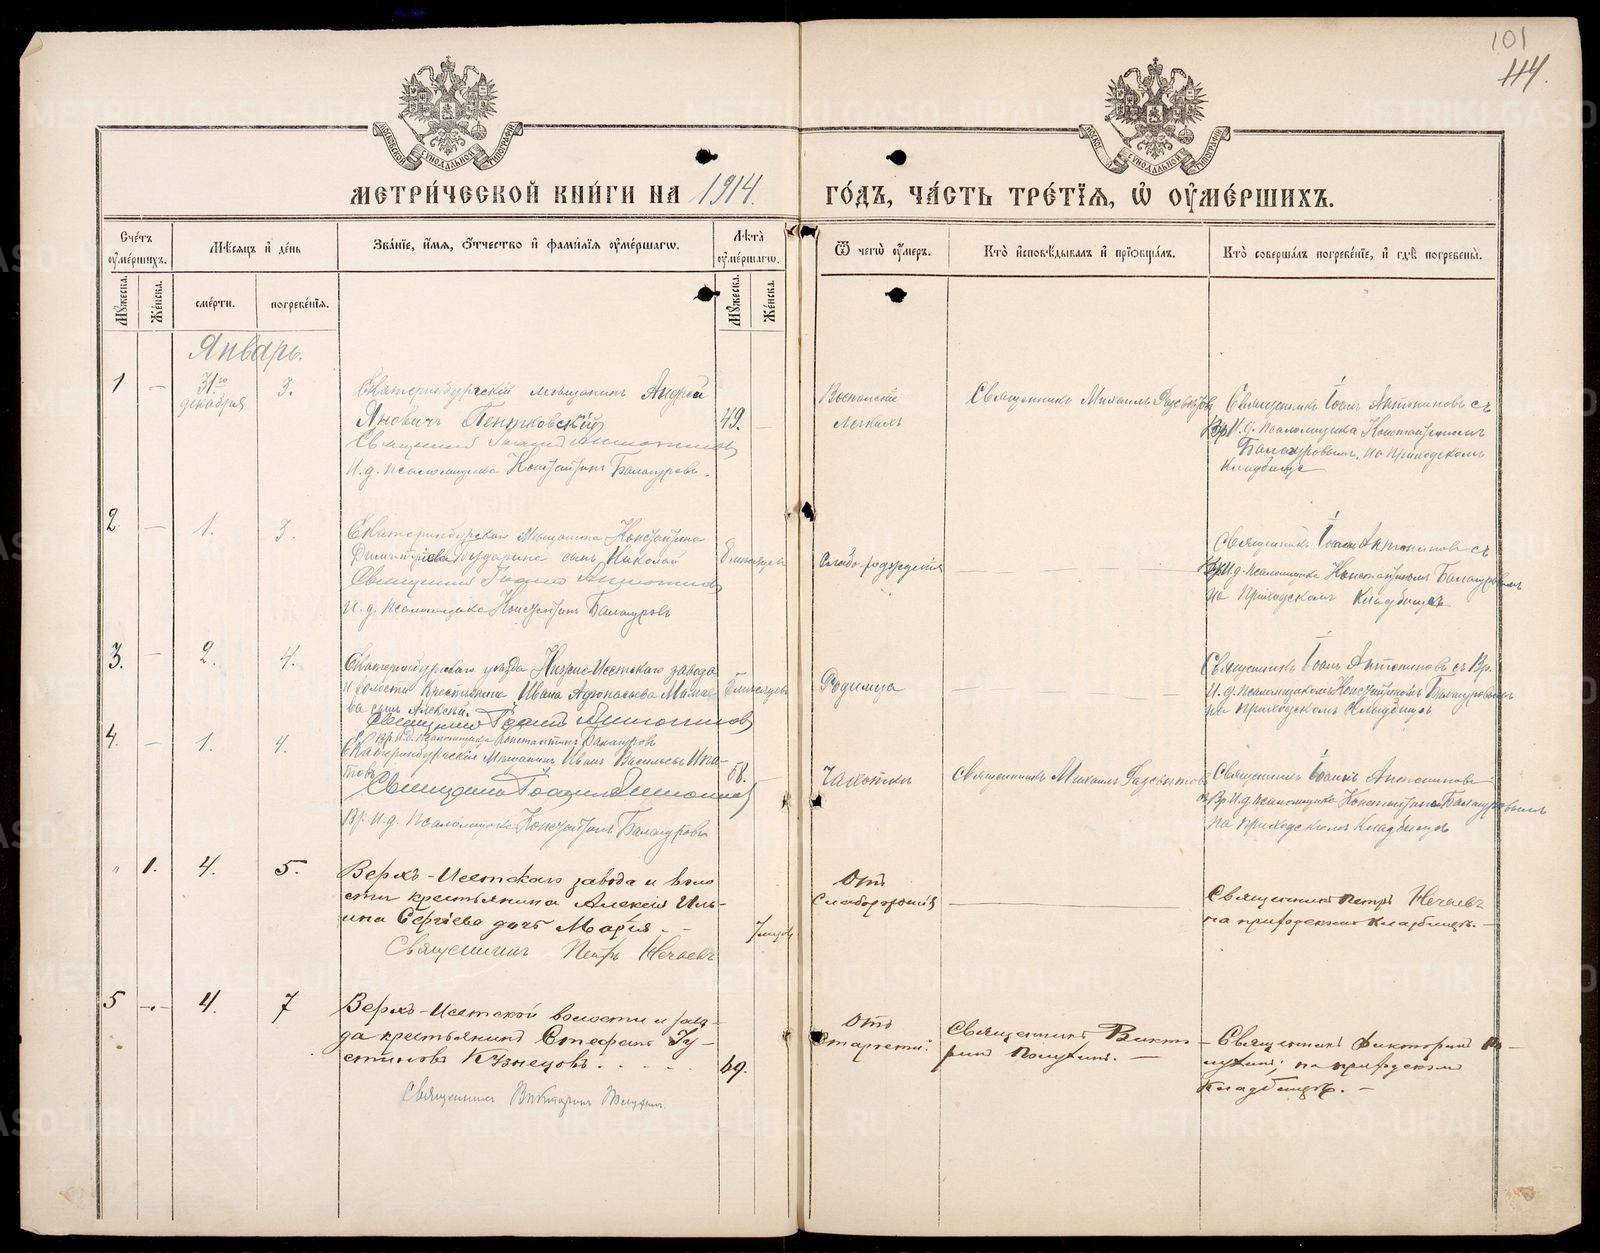 101
114.
МОСКОВСКОЙ СѴНОДАЛЬНОЙ ТИПОГРАФІИ
СѴНОДАЛЬНОЙ ТИПОГРАФІИ
МЕТРИ́ЧЕСКОЙ КНИ́ГИ НА 1914. ГО́ДЪ, ЧА́СТЬ ТРЕ́ТІѦ, Ѡ҆ ОУ҆МЕ́РШИХЪ.
Сче́тъ оу҆ме́ршихъ.
Мѣ́сяцъ и҆ де́нь
Зва́ніе, и҆́мѧ, ѻ҆́тчество и҆ фами́лїѧ оу҆ме́ршагѡ.
Лѣ́та оу҆ме́ршагѡ.
Ѿ чегѡ̀ оу҆́меръ.
Кто̀ и҆сповѣ́дывалъ и҆ прїѡбща́лъ.
Кто̀ соверша́лъ погребе́нїе, и҆ гдѣ̀ погребены̀.
Мꙋ́жеска.
Же́нска.
сме́рти.
погребе́нїѧ.
Мꙋ́жеска.
Же́нска.
Январь.
1 — 31го декабря 3.
Екатеринбургскій мѣщанинъ Андрей
Яновичъ Пентковскій
49. —
Священникъ Іоаннъ Антониновъ
И.д. псаломщика Константинъ Балакуровъ.
Воспаленіе
легкихъ
Священникъ Михаилъ
Священникъ Іоаннъ Антониновъ съ
Вр. И.д. псаломщика Константиномъ
Балакуровымъ, на приходскомъ
кладбище
2. — 1. 3.
Екатеринбургскаго мѣщанина Константина
сынъ Николай
Священникъ Іоаннъ Антониновъ
И.д. псаломщика Константинъ Балакуровъ
Слабо рожденія
Священникъ Іоаннъ Антониновъ съ
Вр. И.д. псаломщика Константиномъ Балакуровымъ
на приходскомъ кладбищѣ
3. — 2. 4.
Екатеринбургскаго уѣзда Нижне-Исетскаго завода
и волости крестьянина Ивана Афонасьева
сынъ Алексѣй.
Священникъ Іоаннъ Антониновъ
Вр. И.д. псаломщика Константинъ Балакуровъ
Родимца
Священникъ Іоаннъ Антониновъ съ Вр.
И.д. псаломщикомъ Константиномъ Балакуровымъ
на приходскомъ кладбищѣ
4. — 1. 4.
Екатеринбургскій мѣщанинъ Иванъ Васильевъ
58. —
Священникъ Іоаннъ Антониновъ
Вр. И.д. псаломщика Константинъ Балакуровъ
Чахотки
Священникъ Михаилъ
Священникъ Іоаннъ Антониновъ
съ Вр И.д. псаломщика Константиномъ Балакуровымъ
на приходскомъ кладбищѣ
" 1. 4. 5.
Верхъ-Исетскаго завода и воло
сти крестьянина Алексія Иль-
ина Сергѣева дочь Марія. —
7 мѣсяц.
Священникъ Петръ Нечаевъ
Отъ
слаборожденія
Священникъ Петръ Нечаевъ
на приходскомъ кладбищѣ. —
5 — 4. 7
Верхъ-Исетской волости и заво-
да крестьянинъ Стефанъ Іу-
стиновъ Кузнецовъ. . . . .
69.
Священникъ Викторинъ
Отъ
старости.
Священникъ Викто
ринъ
Священникъ Викторинъ
на приходскомъ
кладбищѣ. —
METRIKI.GASO-URAL.RU